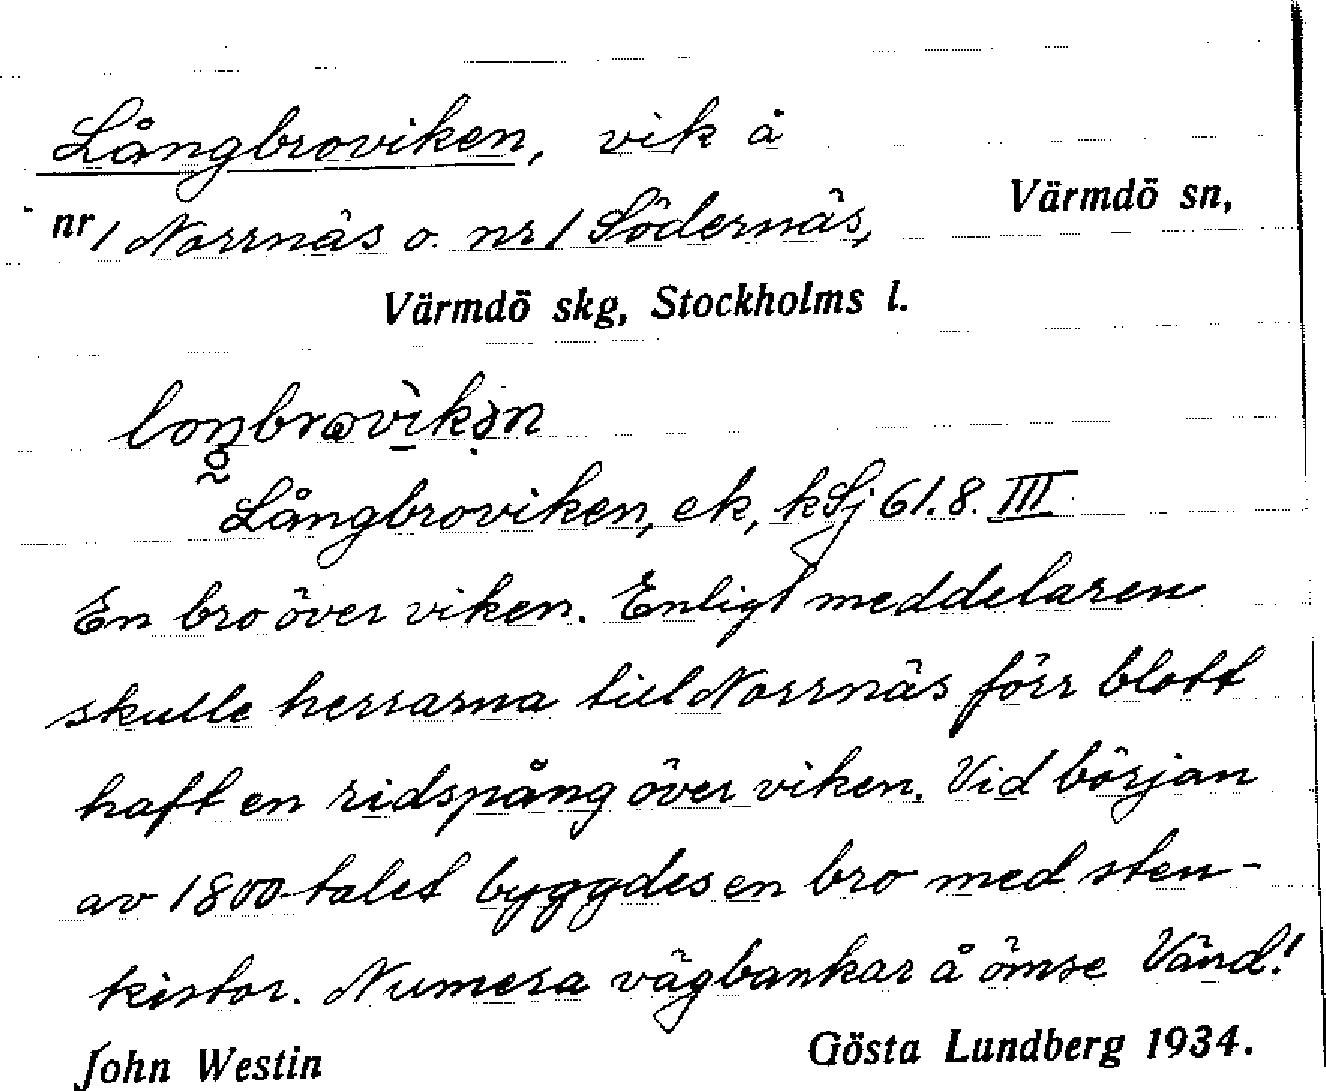 Långbroviken, vik å
Värmdö sn,
nr 1 Norrnäs o. nr 1 Södernäs,
Värmdö skg, Stockholms l.
Långbroviken, ek, kSj 61.8. III
En bro över viken. Enligt meddelaren
skulle herrarna till Norrnäs förr blott
haft en ridspång över viken. Vid början
av 1800-talet byggdes en bro med sten-
kistor. Numera vägbankar å ömse Vänd!
John Westin
Gösta Lundberg 1934.